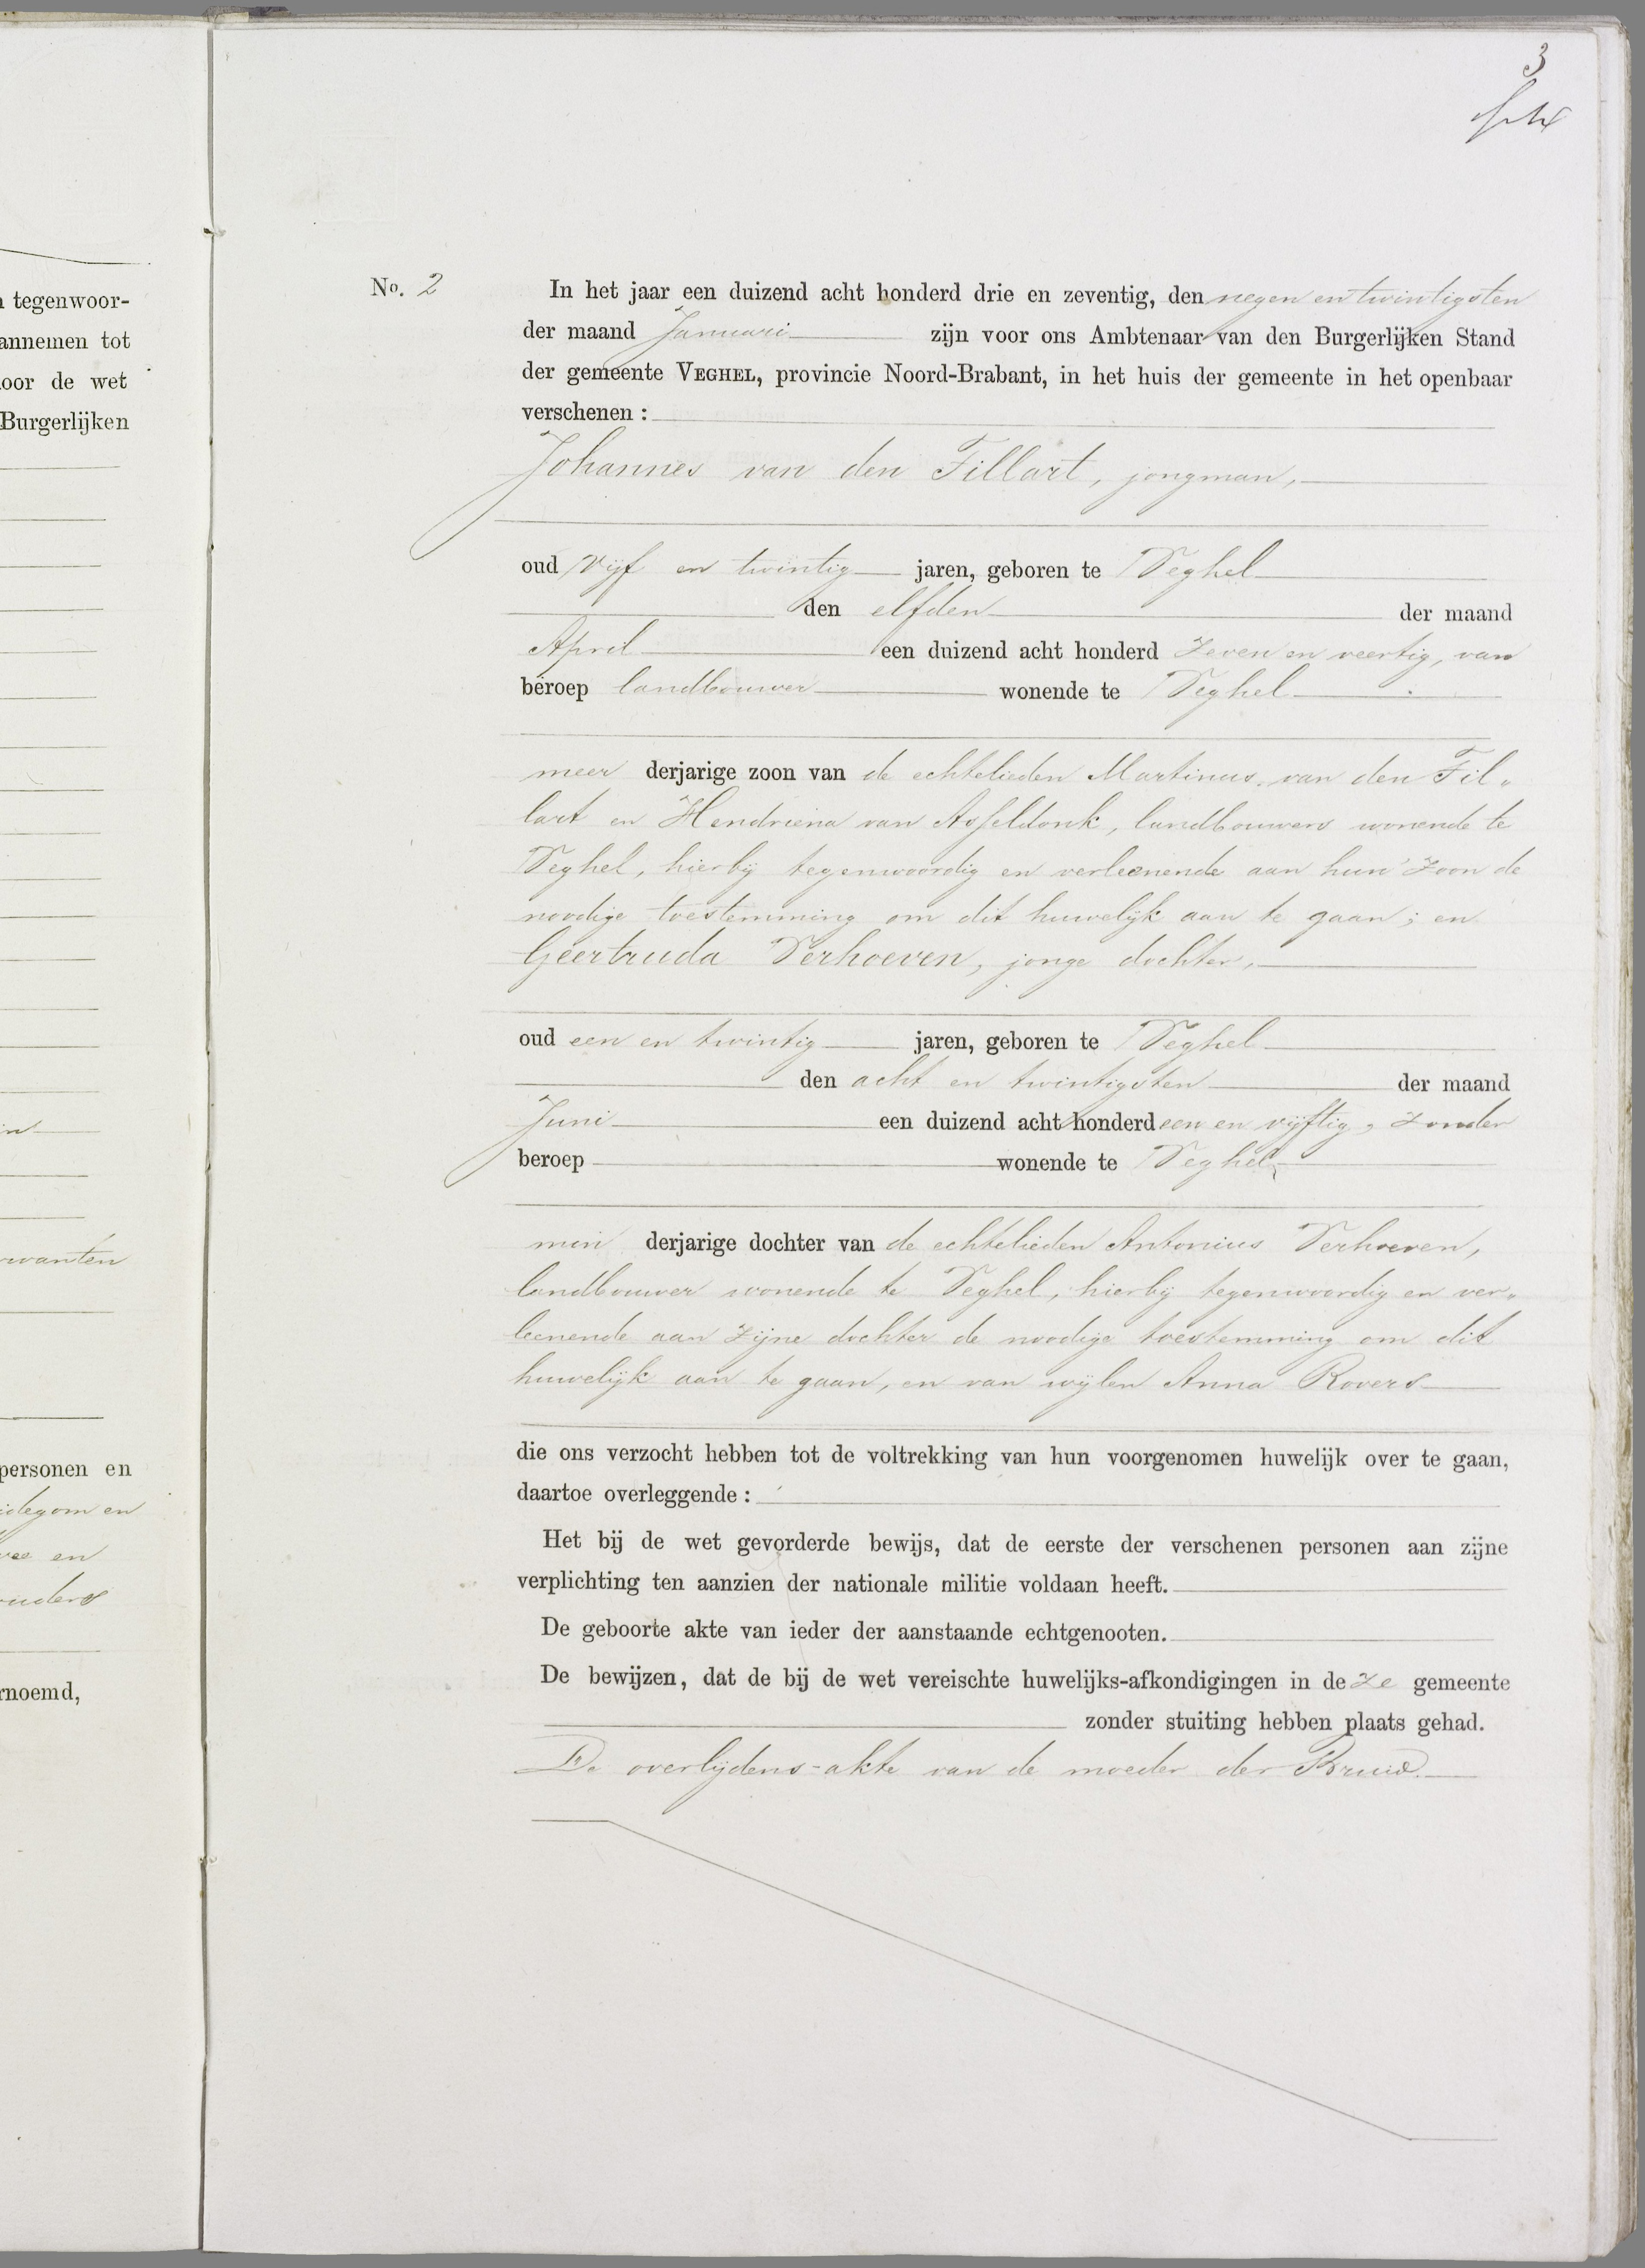 tegenwoor-
annemen tot
oor de wet
Burgerlijken
wanten
personen en
idegom en
en
uders
rnoemd,
3
No. 2
In het jaar een duizend acht honderd drie en zeventig, den negen en twintigsten
der maand Januari zijn voor ons Ambtenaar van den Burgerlijken Stand
der gemeente VEGHEL, provincie Noord-Brabant, in het huis der gemeente in het openbaar
verschenen :
Johannes van den Tillart, jongman,
oud vijf en twintig jaren, geboren te Veghel
den elfden der maand
April een duizend acht honderd zeven en veertig, van
beroep landbouwer wonende te Veghel
meer derjarige zoon van de echtelieden Martinus van den Til„
lart en Hendriena van Asseldonk, landbouwers wonende te
Veghel, hierbij tegenwoordig en verleenende aan hun zoon de
noodige toestemming om dit huwelijk aan te gaan; en
Geertruda Verhoeven, jonge dochter,
oud een en twintig jaren, geboren te Veghel
den acht en twintigsten der maand
Juni een duizend acht honderd een en vijftig, zonder
beroep wonende te Veghel
min derjarige dochter van de echtelieden Antonius Verhoeven,
landbouwer wonende te Veghel, hierbij tegenwoordig en ver„
leenende aan zijne dochter de noodige toestemming om dit
huwelijk aan te gaan, en van wijlen Anna Rovers
die ons verzocht hebben tot de voltrekking van hun voorgenomen huwelijk over te gaan,
daartoe overleggende :
Het bij de wet gevorderde bewijs, dat de eerste der verschenen personen aan zijne
verplichting ten aanzien der nationale militie voldaan heeft.
De geboorte akte van ieder der aanstaande echtgenooten.
De bewijzen, dat de bij de wet vereischte huwelijks-afkondigingen in de ze gemeente
zonder stuiting hebben plaats gehad.
De overlijdens-akte van de moeder der Bruid.